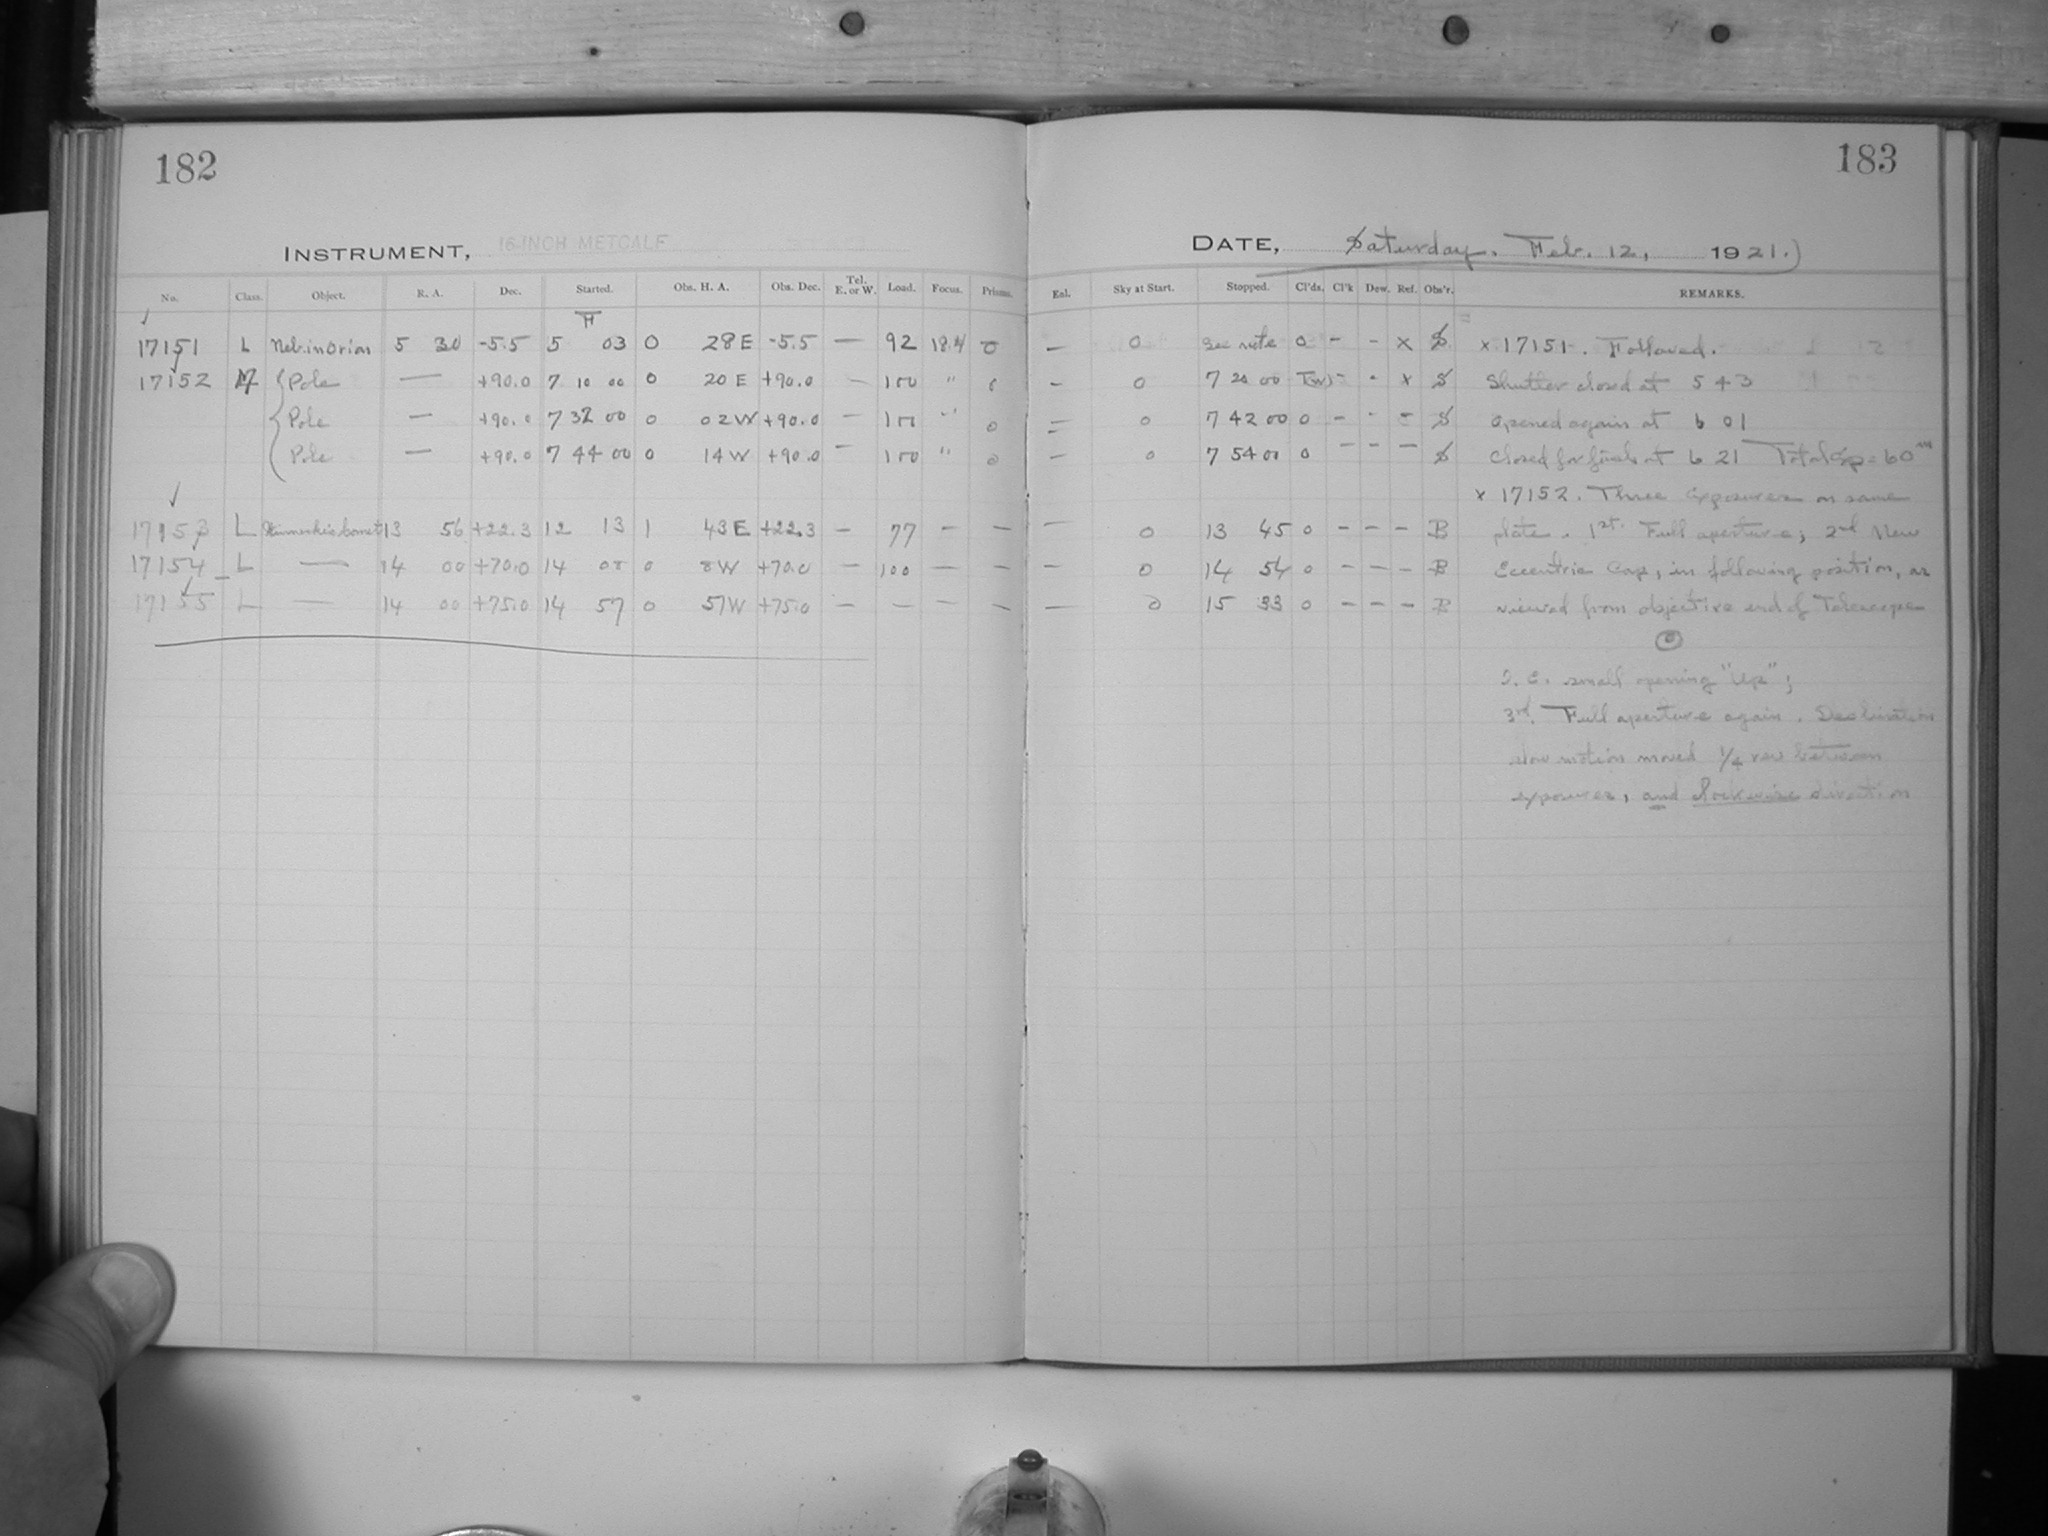 182
INSTRUMENT, 16-INCH METCALF
No. Class. Object. R. A. Dec. Started. Obs. H. A. Obs. Dec. Tel. E. or W. Load. Focus. Prisms.
H
17151 L Neb. in Orion 5 30 -5.5 5 03 0 28 E -5.5 — 92 18.4 0
17152 Pole — +90.0 7 10 00 0 20 E +90.0 — 100 " 0
Pole — +90.0 7 32 00 0 02 W +90.0 — 100 " 0
Pole — +90.0 7 44 00 0 14 W +90.0 — 100 " 0
17153 L Comet 13 56 +22.3 12 13 1 43 E +22.3 — 77 — —
17154 L — 14 00 +70.0 14 08 0 8 W +70.0 — 100 — —
17155 L — 14 00 +75.0 14 57 0 57 W +75.0 — — — —
183
DATE, Saturday, Feb. 12, 1921.
Enl. Sky at Start. Stopped. Cl'ds. Cl'k Dew. Ref. Obs'r. REMARKS.
— 0 See note 0 - - x S x 17151. Followed.
— 0 7 20 00 - - x S Shutter closed at 5 43
— 0 7 42 00 0 - - - S Opened again at 6 01
— 0 7 54 00 0 - - - S Closed for finish at 6 21 Total Exp = 60 m
x 17152. Three exposures on same
— 0 13 45 0 - - - B plate. 1st. Full aperture; 2nd New
— 0 14 54 0 - - - B Eccentric Cap, in following position, as
— 0 15 33 0 - - - B viewed from objective end of Telescope
I. E. small opening "Up";
3rd. Full aperture again. Declination
slow motion moved 1/4 rev between
exposures, and Clockwise direction